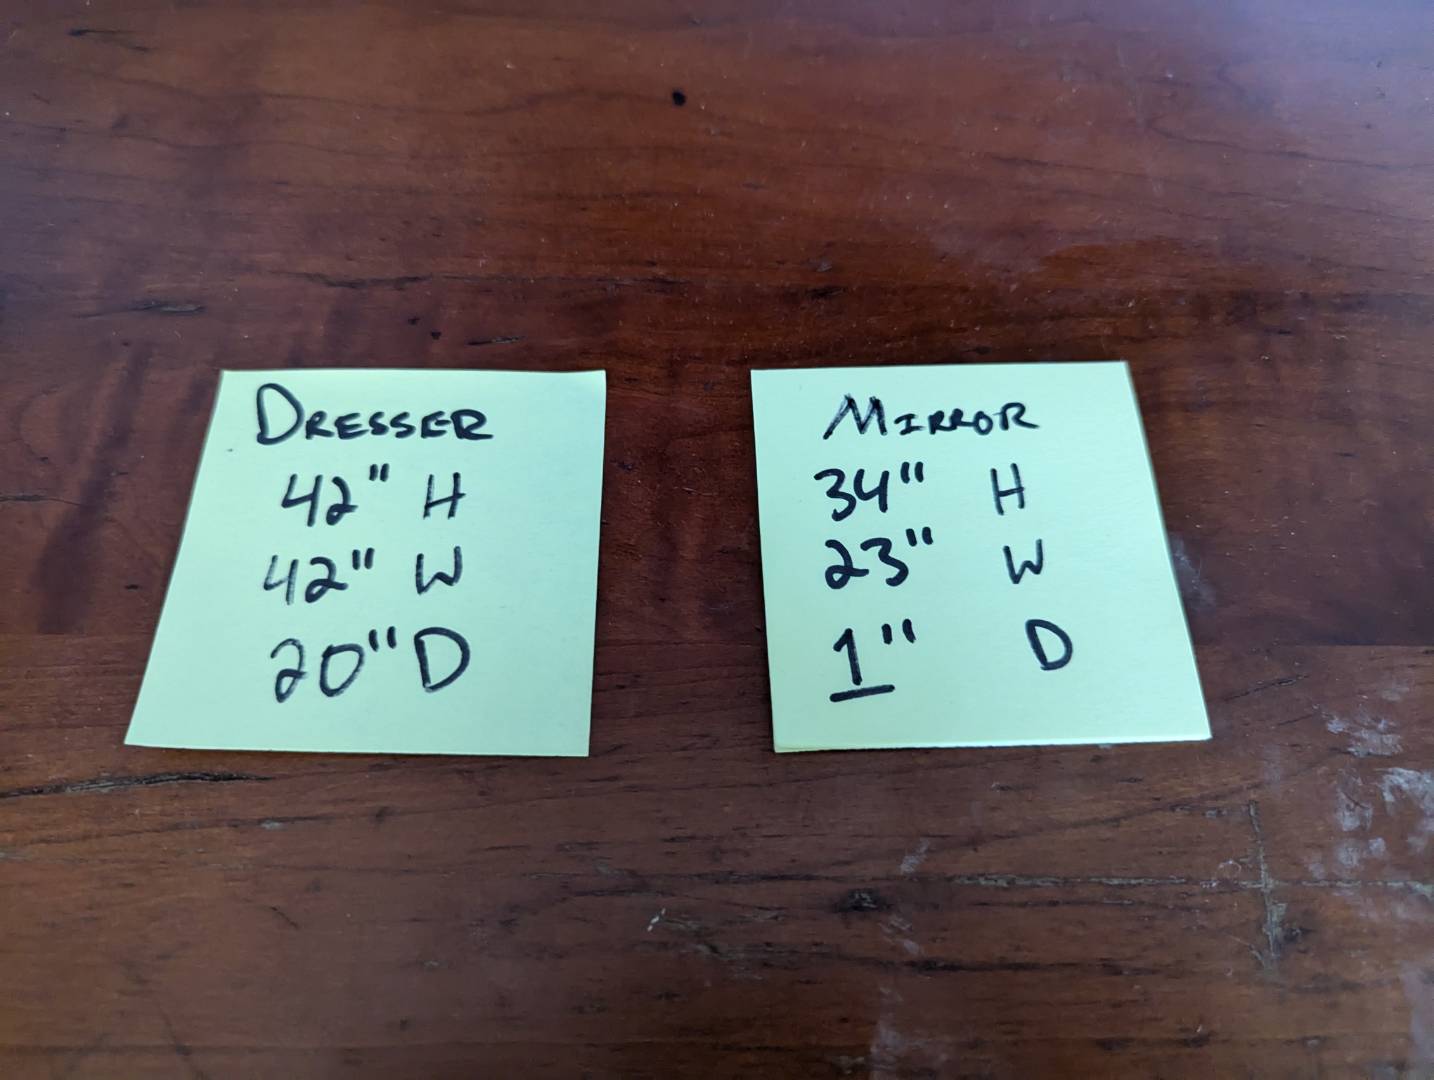 DRESSER
42" H
42" W
20" D
MIRROR
34" H
23" W
1" D